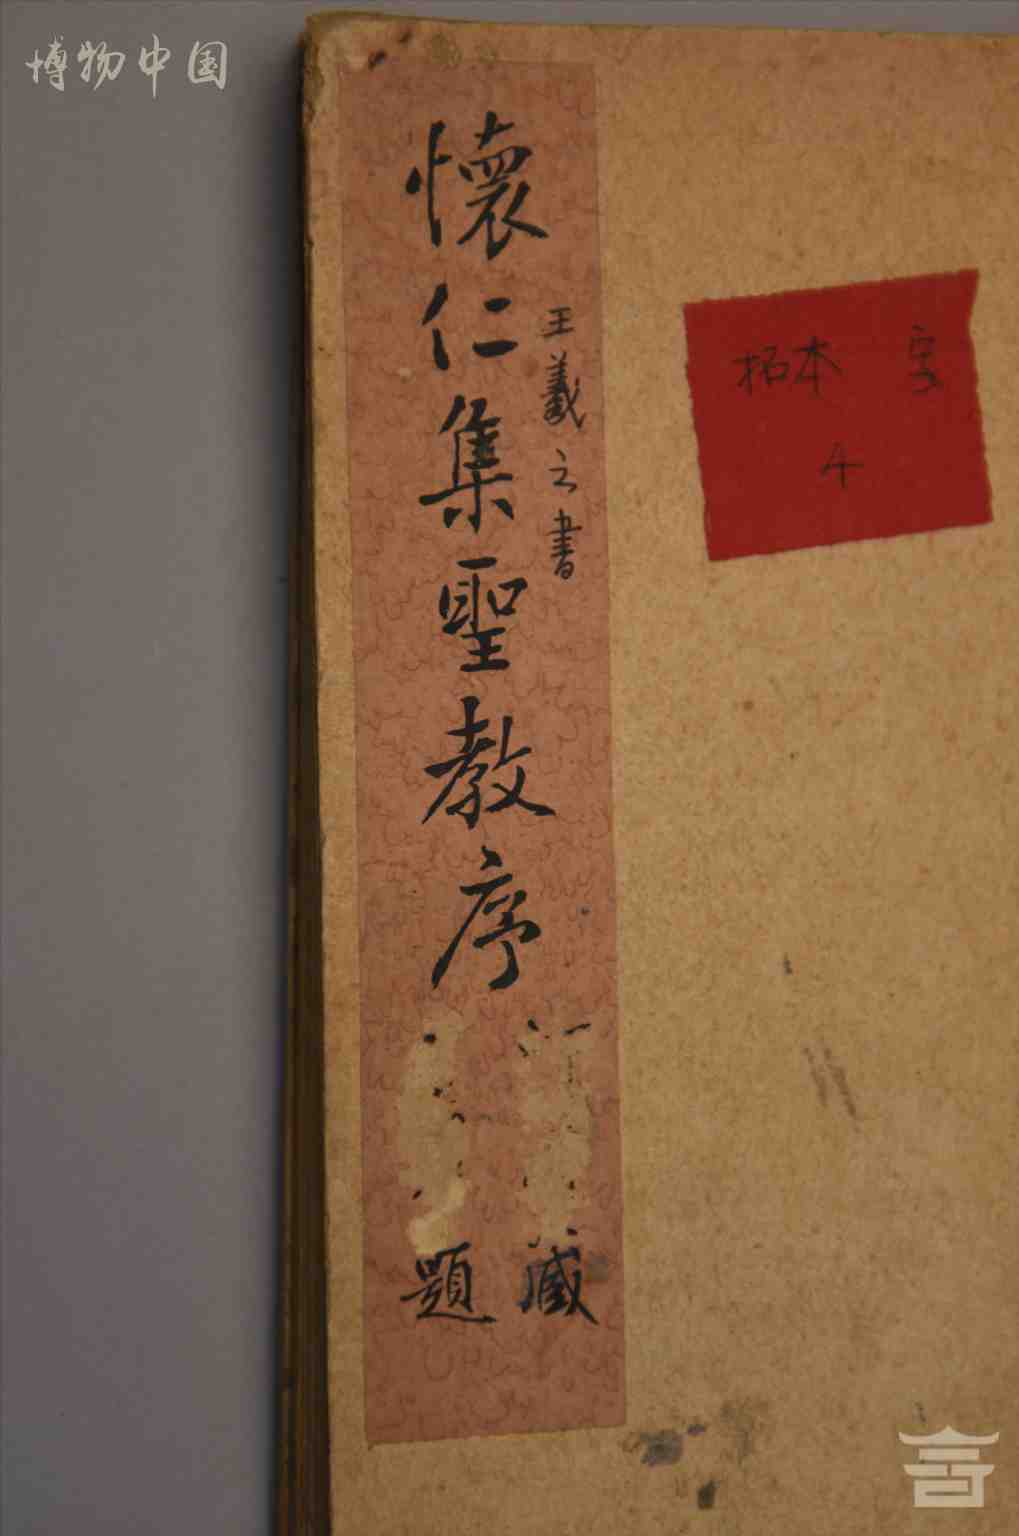 博物中国
懷仁集聖教序
王羲之書
藏
題
拓本
4